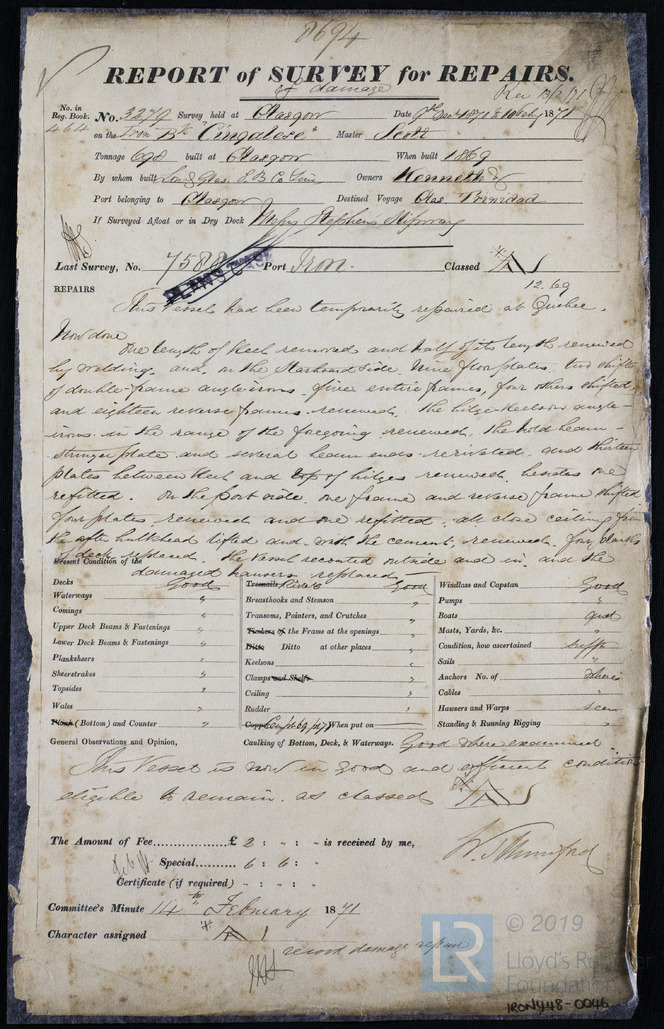 8694
REPORT of SURVEY for REPAIRS.
of damage
No. in Reg. Book.
464
No. 3279 Survey held at Glasgow Date 9th Dec 1870 to 10 Feby 1871
on the Iron Bk "Cingalese" Master Scott
Tonnage 698 built at Glasgow When built 1869
By whom built Lon & Glas. E B Co Lim Owners Kenneth & Co
Port belonging to Glasgow Destined Voyage Glas Trinidad
If Surveyed Afloat or in Dry Dock Messrs Stephens Slipway
Last Survey, No. 7588 Port Iron. Classed A 1
12.69
REPAIRS
This Vessel had been temporarily repaired at Quebec.
Now done
One length of Keel removed and half of its length renewed
by welding. and, on the Starboard side. nine floor plates. two shifts
of double-frame angle-irons. five entire frames, four others shifted
and eighteen reverse frames renewed. the bilge-Keelson angle-
irons in the range of the foregoing renewed. the hold beam-
stringer plate and several beam ends rerivetted, and thirteen
plates between Keel and top of bilges renewed. besides one
refitted. On the port side. one frame and reverse frame shifted
four plates renewed and one refitted. all close ceiling from
the after bulkhead lifted and, with the cement, renewed. four planks
of deck replaced. the Vessel recoated outside and in, and the
damaged hawsers replaced.
Present Condition of the
Decks Good
Waterways "
Comings "
Upper Deck Beams & Fastenings "
Lower Deck Beams & Fastenings "
Planksheers "
Sheerstrakes "
Topsides "
Wales "
Plank (Bottom) and Counter "
Treenails Rivets Good
Breasthooks and Stemson "
Transoms, Pointers, and Crutches "
Timbers of the Frame at the openings "
Ditto Ditto at other places "
Keelsons "
Clamps and Shelfs "
Ceiling "
Rudder "
When put on
Caulking of Bottom, Deck, & Waterways. Good where examined
Windlass and Capstan Good
Pumps "
Boats Good
Masts, Yards, &c. "
Condition, how ascertained sufft
Sails "
Anchors No. of where
Cables "
Hawsers and Warps seen
Standing & Running Rigging "
General Observations and Opinion,
This Vessel is now in good and efficient condition
eligible to remain as classed A 1
The Amount of Fee £ 2 : " : " is received by me,
Special 6 : 6 : "
Certificate (if required) " : " : "
W. T. Mumford
Committee's Minute 14th February 1871
Character assigned A 1
record damage repair
© 2019
LR
Lloyd's Register
Foundation
IRON448-0046